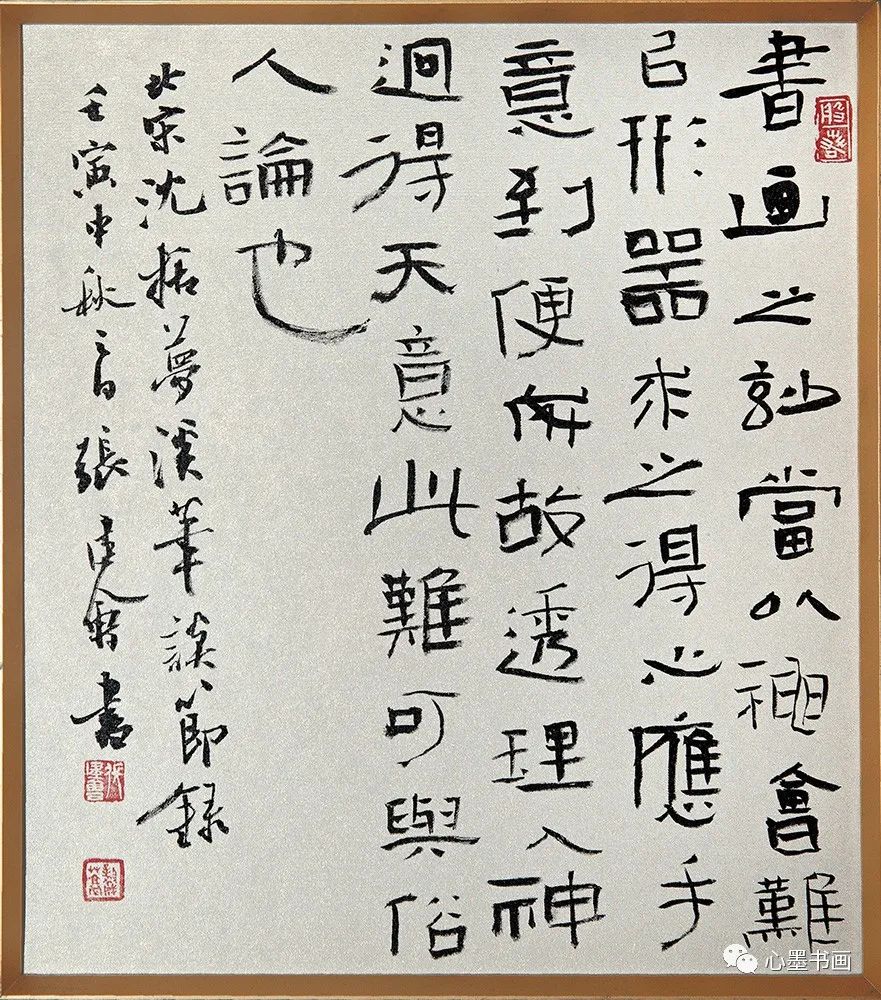 書画之妙當以神會難
㠯形器求之得心應手
意到便成故透理入神
迥得天意此難可與俗
人論也
北宋沈括夢溪筆談節録
壬寅中秋張書
心墨书画